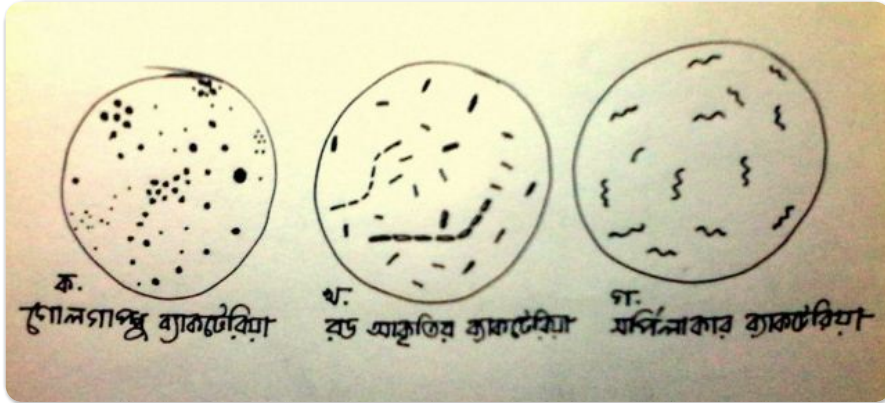 ক.
ব্যাকটেরিয়া
খ.
রড আকৃতির ব্যাকটেরিয়া
গ.
সর্পিলাকার ব্যাকটেরিয়া